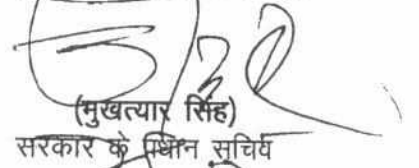 (मुखत्यार सिंह)
सरकार के प्रधान सचिव